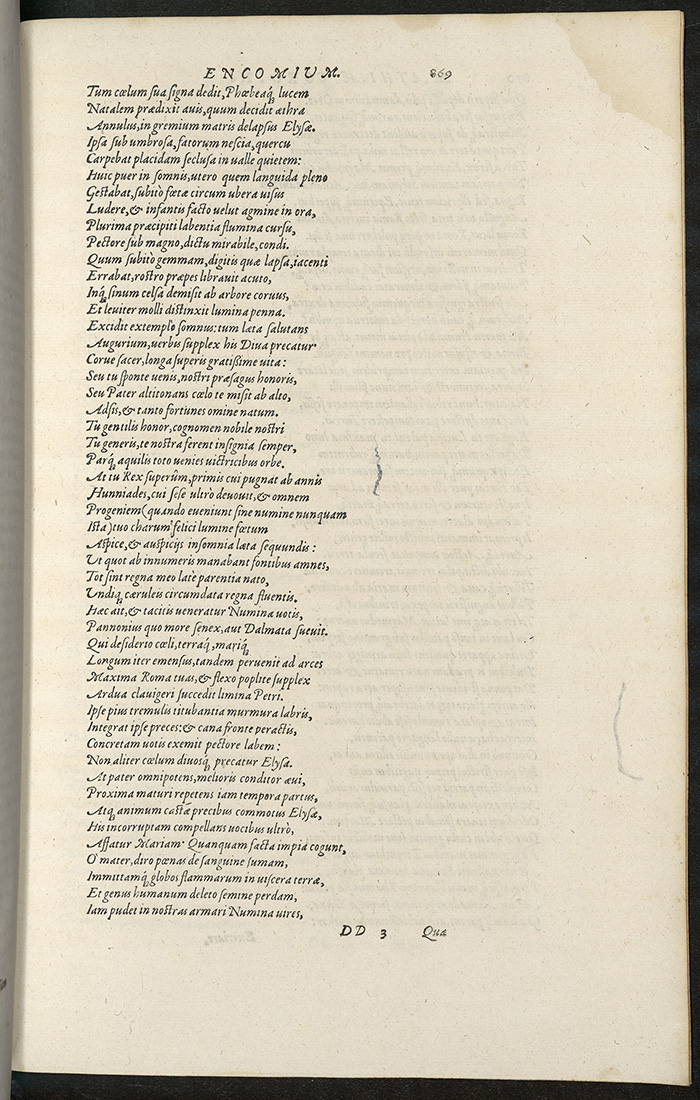 ENCOMIUM. 869
Tum cœlum sua signa dedit, Phœbeaq́; lucem
Natalem prædixit auis, quum decidit æthra
Annulus, in gremium matris delapsus Elysæ.
Ipsa sub umbrosa, fatorum nescia, quercu
Carpebat placidam seclusa in ualle quietem:
Huic puer in somnis, utero quem languida pleno
Gestabat, subitò fœtæ circum ubera uisus
Ludere, & infantis facto uelut agmine in ora,
Plurima præcipiti labentia flumina cursu,
Pectore sub magno, dictu mirabile, condi.
Quum subitò gemmam, digitis quæ lapsa, iacenti
Errabat, rostro præpes librauit acuto,
Inq́; sinum celsa demisit ab arbore coruus,
Et leuiter molli distinxit lumina penna.
Excidit extemplo somnus: tum læta salutans
Augurium, uerbis supplex his Diua precatur
Corue sacer, longa superis gratißime uita:
Seu tu sponte uenis, nostri præsagus honoris,
Seu Pater altitonans cœlo te misit ab alto,
Adsis, & tanto fortunes omine natum.
Tu gentilis honor, cognomen nobile nostri
Tu generis, te nostra ferent insignia semper,
Parq́; aquilis toto uenies uictricibus orbe.
At tu Rex superûm, primis cui pugnat ab annis
Hunniades, cui sese ultrò deuouit, & omnem
Progeniem (quando eueniunt sine numine nunquam
Ista) tuo charum felici lumine fœtum
Aspice, & auspicijs insomnia læta sequundis:
Ut quot ab innumeris manabant fontibus amnes,
Tot sint regna meo latè parentia nato,
Undiq; cæruleis circumdata regna fluentis.
Hæc ait, & tacitis ueneratur Numina uotis,
Pannonius quo more senex, aut Dalmata sueuit.
Qui desiderio cœli, terraq́;, mariq́;
Longum iter emensus, tandem peruenit ad arces
Maxima Roma tuas, & flexo poplite supplex
Ardua clauigeri succedit limina Petri.
Ipse pius tremulis titubantia murmura labris,
Integrat ipse preces: & cana fronte peractis,
Concretam uotis exemit pectore labem:
Non aliter cœlum diuosq́; precatur Elysa.
At pater omnipotens, melioris conditor æui,
Proxima maturi repetens iam tempora partus,
Atq; animum castæ precibus commotus Elysæ,
His incorruptam compellans uocibus ultrò,
Affatur Mariam. Quanquam facta impia cogunt,
O mater, diro pœnas de sanguine sumam,
Immittamq́; globos flammarum in uiscera terræ,
Et genus humanum deleto semine perdam,
Iam pudet in nostras armari Numina uires,
DD 3 Quæ